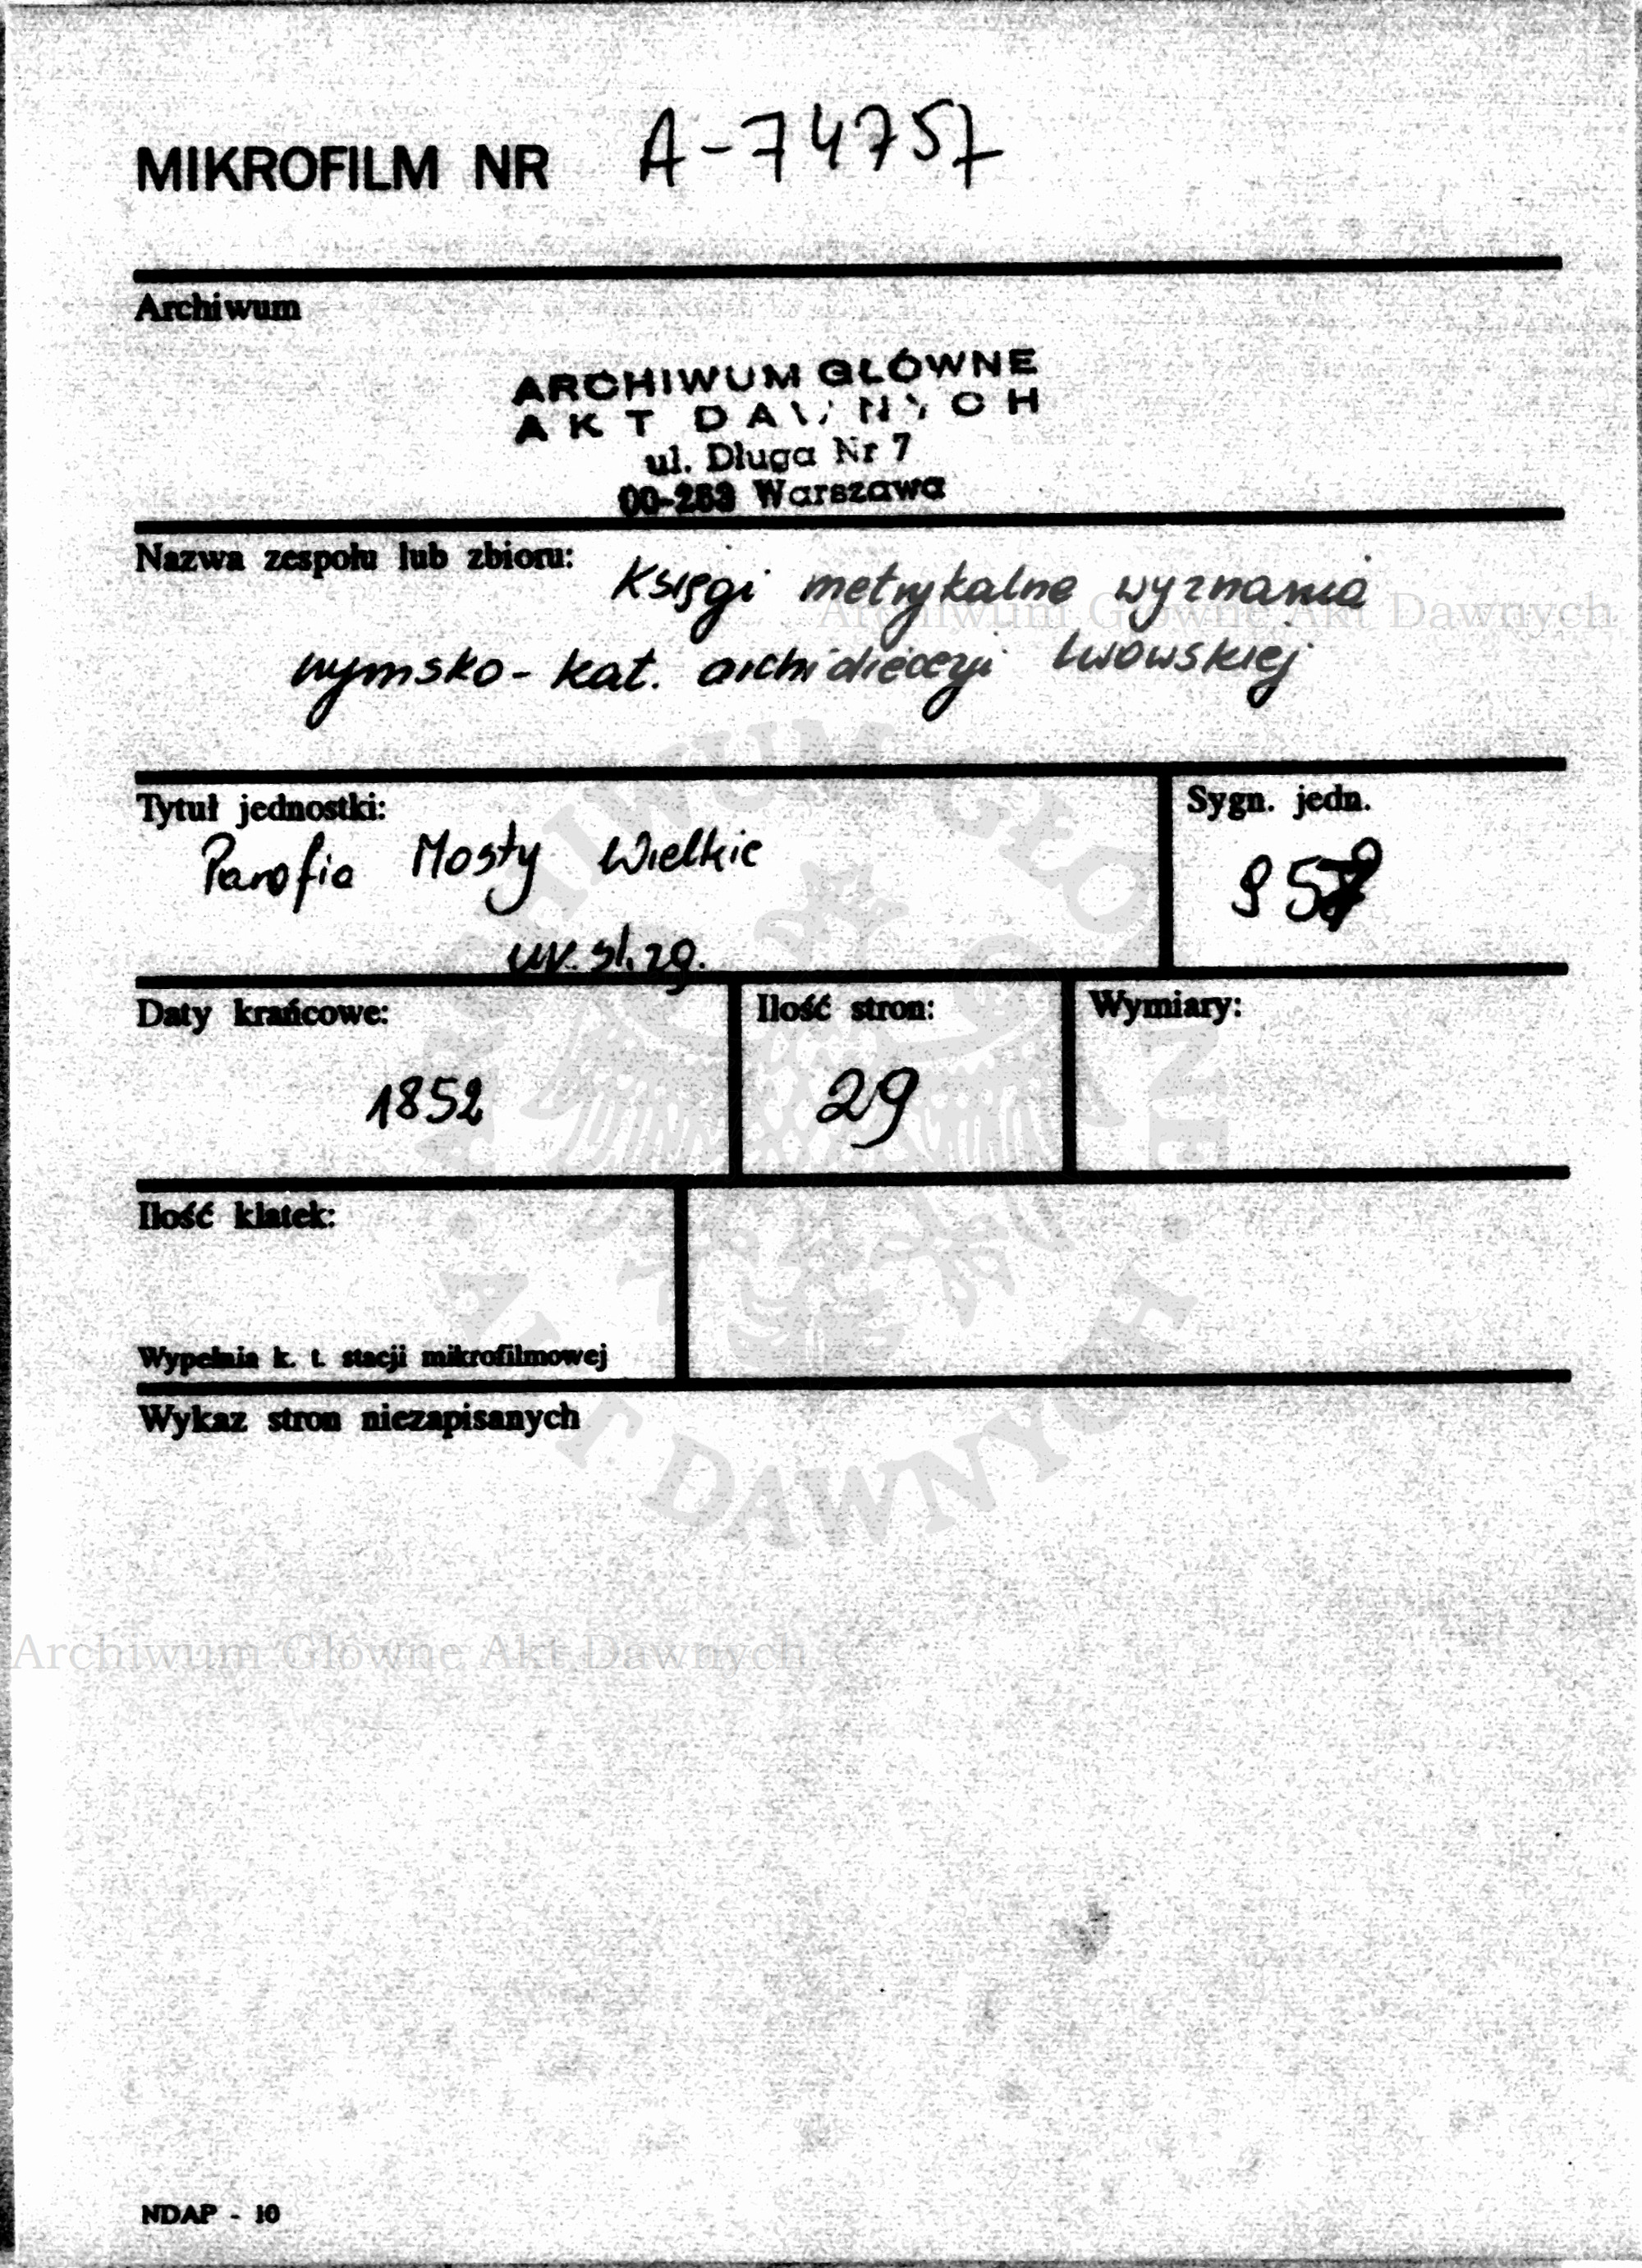 MIKROFILM NR A-74757
Archiwum
ARCHIWUM GŁÓWNE
AKT DAWNYCH
ul. Długa Nr 7
00-263 Warszawa
Nazwa zespołu lub zbioru: Księgi metrykalne wyznania
Archiwum Główne Akt Dawnych
rzymsko-kat. archidiecezji Lwowskiej
Tytuł jednostki:
Sygn. jedn.
Parafia Mosty Wielkie
ur. śl. zg.
Daty krańcowe:
Ilość stron:
Wymiary:
1852
29
Ilość klatek:
Wypełnia k. t. stacji mikrofilmowej
Wykaz stron niezapisanych
ARCHIWUM GŁÓWNE
AKT DAWNYCH
Archiwum Główne Akt Dawnych
NDAP - 10